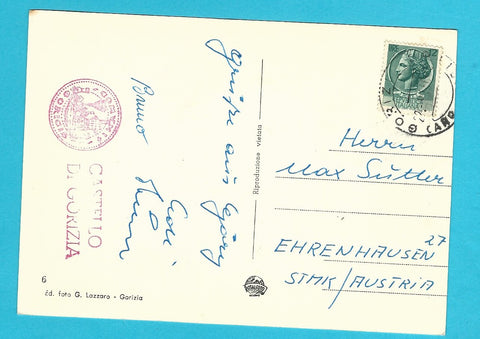 Grüße aus Görz
Bruno
CASTELLO
DI GORIZIA
6
ed. foto G. Lazzaro - Gorizia
Riproduzione vietata
Herrn
Max Sutter
EHRENHAUSEN 27
STMK/AUSTRIA